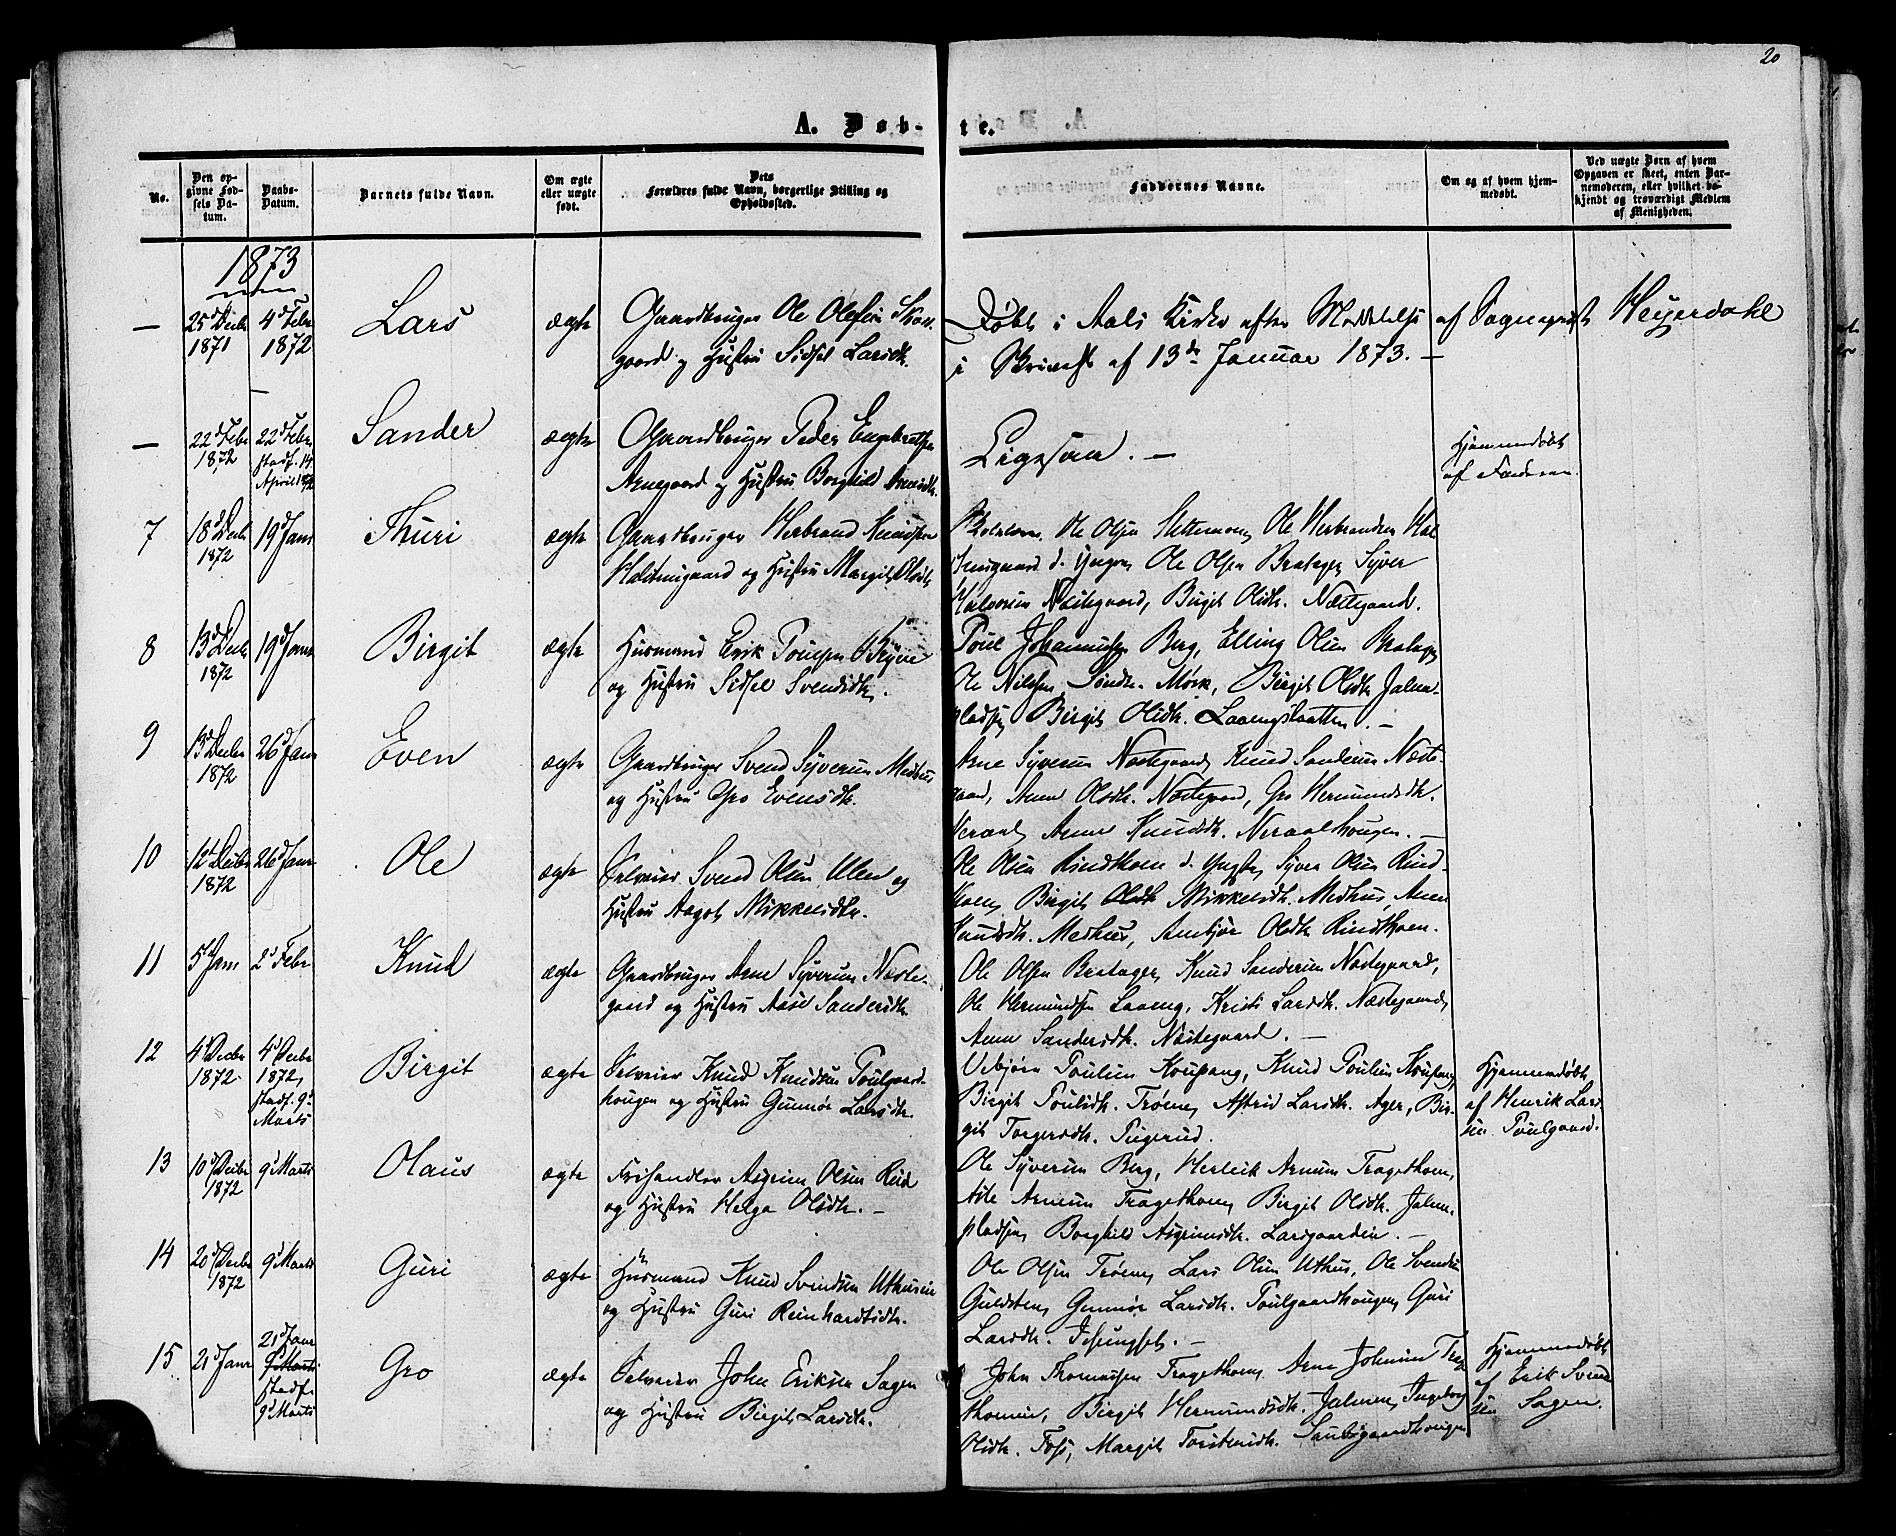 20
A. Døb-
te.
No.
Den opgivne Fødsels Datum.
Daabs-Datum.
Barnets fulde Navn.
Om ægte eller uægte født.
Dets Forældres fulde Navn, borgerlige Stilling og Opholdssted.
Faddernes Navne.
Om og af hvem hjemmedøbt.
Ved uægte Børn af hvem Opgaven er skeet, enten Barnemoderen, eller hvilket bekjendt og troværdigt Medlem af Menigheden.
1873
— 25d Decbr 1871
4d Febr 1872
Lars
ægte
Gaardbruger Ole Olesen
gaard og Hustru Sidsel Larsdtr.
Døbt i Aals Kirke efter Meddelelse af Sogneprest Heyerdahl
i Skrivelse af 13de Januar 1873. —
— 22d Febr 1872
22d Febr stadf. 14 April 1872
Sander
ægte
Gaardbruger Peder Engebretsen
Arnegaard og Hustru Borghild
Ligesaa. —
Hjemmedøbt
af Faderen
7
18d Decbr 1872
19d Janr
Thuri
ægte
Gaardbruger Herbrand Knudsen
Holtmigaard og Hustru Margit Olsdtr
Ole Olsen Ole Herbrandsen Hol-
d. Yngre, Ole Olsen Bratager, Syver
Halvorsen Næstegaard, Birgit Olsdtr. Næstegaard.
8
13d Decbr 1872
19d Janr
Birgit
ægte
Husmand Erik Poulsen
og Hustru Sidsel Svendsdtr.
Poul Johannesen Berg, Elling Olsen Bratager,
Ole Nilssen Søndr. Mørk, Birgit Olsdtr Jalm-
pladsen, Birgit Olsdtr. Laaengslaatten. —
9
13d Decbr 1872
26d Janr
Even
ægte
Gaardbruger Svend Syversen Medhus
og Hustru Gro Evensdtr.
Arne Syversen Næstegaard, Knud Sandersen Næste-
gaard, Anne Olsdtr. Næstegaard, Gro Hermundsdtr.
Neraal, Anne Knudsdtr. Neraalhaugen. —
10
12d Decbr 1872
26d Janr
Ole
ægte
Selveier Svend Olsen Ulen og
Hustru Aagot Mikkelsdtr.
Ole Olsen Rindthoen d. Yngste, Syver Olsen Rind-
hoen, Birgit Olsdtr Mikkelsdtr. Medhus, Anne
Knudsdtr. Medhus, Ambjør Olsdtr Rindthoen.
11
5d Janr
2d Febr
Knud
ægte
Gaardbruger Arne Syversen Næste-
gaard og Hustru Aase Sandersdtr.
Ole Olsen Bratager, Knud Sandersen Næstegaard,
Ole Hermundsen Laaeng, Kristi Larsdtr. Næstegaard,
Anne Sandersdtr. Næstegaard. —
12
4d Decbr 1872
4d Decbr 1872, stadf. 9d Marts
Birgit
ægte
Selveier Knud Knudsen Poulgaard-
haugen og Hustru Gunnør Larsdtr.
Vebjørn Poulsen Knud Poulsen
Birgit Poulsdtr. Trøen, Astrid Larsdtr. Ager, Bir-
git Torgersdtr.
Hjemmedøbt
af Henrik Lar-
sen Poulgaard.
13
10d Decbr 1872
9d Marts
Olaus
ægte
Frihandler Asgrim Olsen Reid
og Hustru Helga Olsdtr. —
Ole Syversen Berg, Herleik Arnesen Tragethoen,
Asle Arnesen Tragethoen, Birgit Olsdtr. Jalm-
pladsen, Borghild Asgrimsdtr. Larsgaarden. —
14
20d Decbr 1872
9d Marts
Guri
ægte
Husmand Knud Svendsen Uthuseie
og Hustru Guri Reinhardtsdtr.
Ole Olsen Trøen, Lars Olsen Uthus, Ole Svendsen
Guldsten, Gunnør Larsdtr. Poulgaardhaugen, Guri
Larsdtr.  —
15
21d Janr
21d Janr
9d Marts
stadf.
9d Marts
Gro
ægte
Selveier John Eriksen Sagen
og Hustru Birgit Larsdtr.
John Thomassen Tragethoen, Arne Johnsen Trage-
thoen, Birgit Hermundsdtr. Jalmen, Ingeborg
Olsdtr. Foss, Margit Torstensdtr.
Hjemmedøbt
af Erik Svend-
sen Sagen.